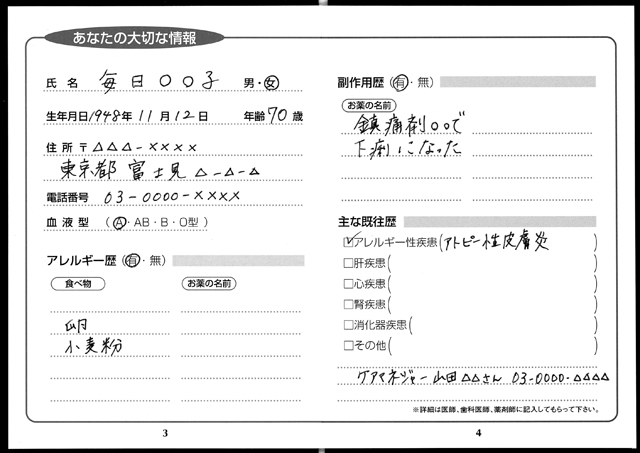 あなたの大切な情報
氏名 毎日〇〇子 男・女
生年月日 1948年11月12日 年齢70歳
住所 〒△△△-××××
東京都富士見△-△-△
電話番号 03-0000-××××
血液型 (A・AB・B・O型)
アレルギー歴 (有・無)
食べ物 お薬の名前
卵
小麦粉
3
副作用歴 (有・無)
お薬の名前
鎮痛剤〇〇で
下痢になった
主な既往歴
☑アレルギー性疾患(アトピー性皮膚炎)
□肝疾患( )
□心疾患( )
□腎疾患( )
□消化器疾患( )
□その他( )
ケアマネジャー山田△△さん 03-0000-△△△△
※詳細は医師、歯科医師、薬剤師に記入してもらって下さい。
4